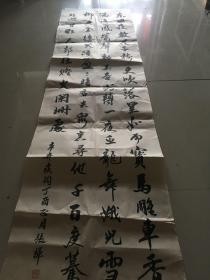 东风夜放花千树更吹落星如雨宝马雕车香
满路凤箫声动玉壶光转一夜鱼龙舞蛾儿雪
柳黄金缕笑语盈盈暗香去众里寻他千百度蓦
然回首那人却在灯火阑珊处
辛弃疾词丁酉